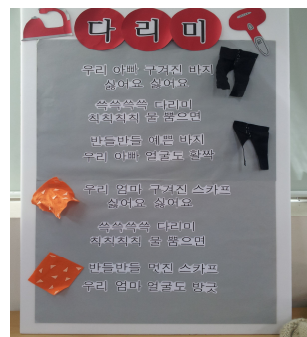 다리미
우리 아빠 구겨진 바지
싫어요 싫어요
쓱쓱쓱쓱 다리미
칙칙칙칙 물 뿜으면
반들반들 예쁜 바지
우리 아빠 얼굴도 활짝
우리 엄마 구겨진 스카프
싫어요 싫어요
쓱쓱쓱쓱 다리미
치치칙칙 물 뿜으면
반들반들 멋진 스카프
우리 엄마 얼굴도 방긋